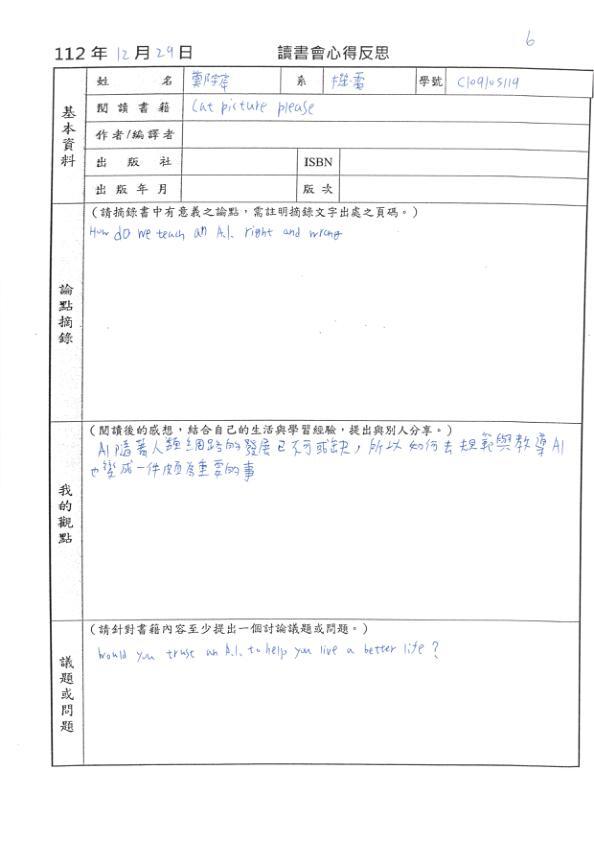 6
112 年 12 月 29 日 讀書會心得反思
基本資料
姓名 鄭 系 學號 C109105119
閱讀書籍 Cat picture please
作者/編譯者
出版社 ISBN
出版年月 版次
論點摘錄
(請摘錄書中有意義之論點，需註明摘錄文字出處之頁碼。)
How do we teach an A.I. right and wrong
我的觀點
(閱讀後的感想，結合自己的生活與學習經驗，提出與別人分享。)
AI隨著人類網路的發展已不可或缺，所以如何去規範與教導AI
也變成一件頗為重要的事
議題或問題
(請針對書籍內容至少提出一個討論議題或問題。)
Would you trust an A.I. to help you live a better life?